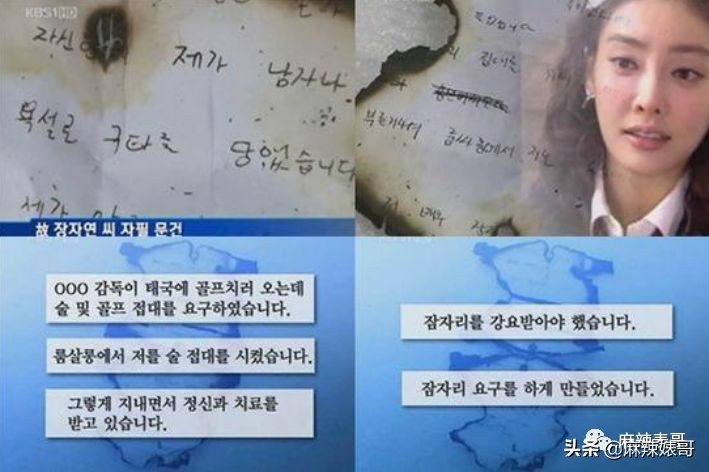 KBS1HD
자신
제가 남자나
욕설로 구타를 당했습니다
제가
故 장자연 씨 자필 문건
접대를
에서 저는
OOO 감독이 태국에 골프치러 오는데
술 및 골프 접대를 요구하였습니다.
룸살롱에서 저를 술 접대를 시켰습니다.
그렇게 지내면서 정신과 치료를
받고 있습니다.
잠자리를 강요받아야 했습니다.
잠자리 요구를 하게 만들었습니다.
麻辣表哥
头条 @麻辣婊哥